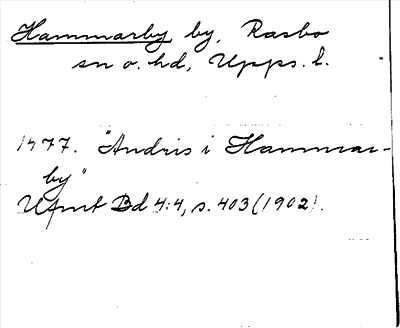 Hammarby by, Rasbo
sn o. hd, Upps. l.
1477. "Andris i Hammar-
by"
UFmT Bd 4:4, s. 403 (1902).